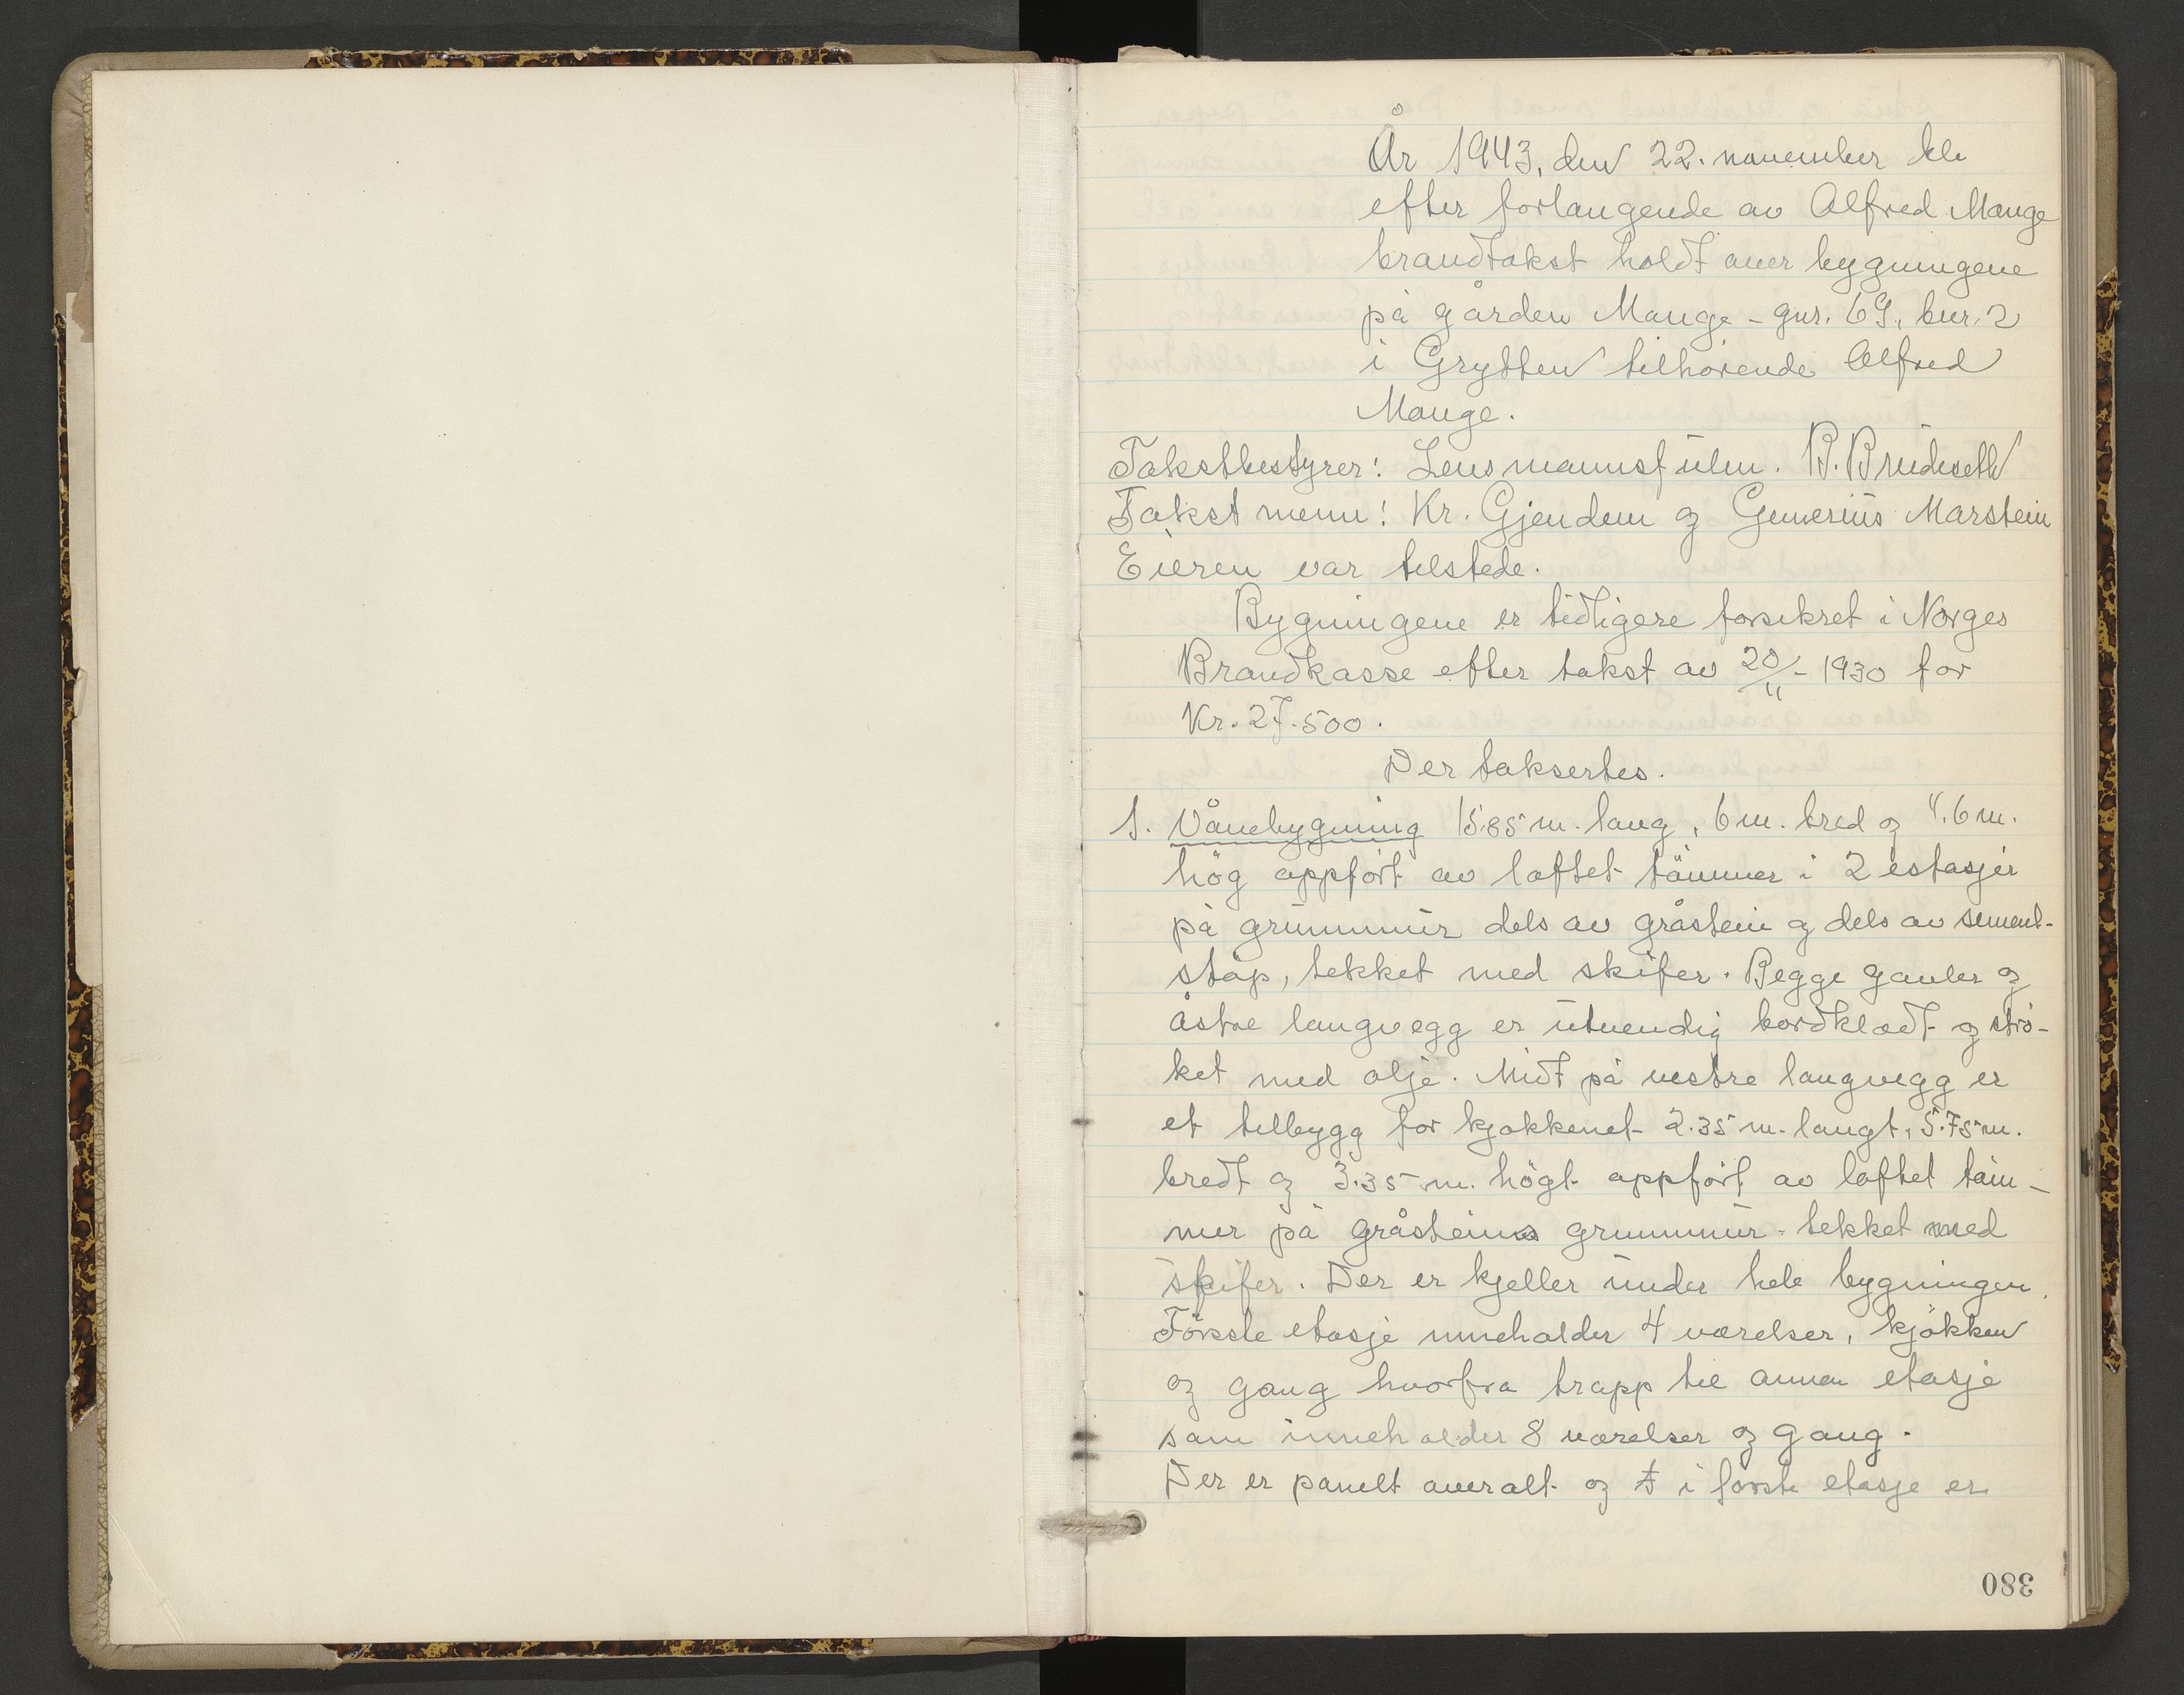 År 1943, den 22. november ble
efter forlangende av Alfred Mange
brandtakst holdt over bygningene
på gården Mange - gnr. 69, bnr. 2
i Grytten tilhörende Alfred
Mange.
Takstbestyrer: Lensmannsfulm. B. Brudeseth
Takstmenn: Kr. Gjendem og Marstein
Eieren var tilstede.
Bygningene er tidligere forsikret i Norges
Brandkasse efter takst av 20/11 - 1930 for
Kr. 27.500.
Der taksertes.
1. Vånebygning 15.85 m. lang, 6 m. bred og 4.6 m.
hög oppfört av laftet tömmer i 2 estasjer
på grunnmur dels av gråstein og dels av sement-
stöp, tekket med skifer. Begge gavler og
östre langvegg er utvendig bordkledt og strö-
ket med olje. Midt på vestre langvegg er
et tilbygg for kjökkenet 2.35 m. langt, 5.75 m.
bredt og 3.35 m. högt oppfört av laftet töm-
mer på gråsteins grunnmur - tekket med
skifer. Der er kjeller under hele bygningen.
Förste etasje inneholder 4 værelser, kjökken
og gang hvorfra trapp til annen etasje
som inneholder 8 værelser og gang.
Der er panelt overalt og i förste etasje er
380